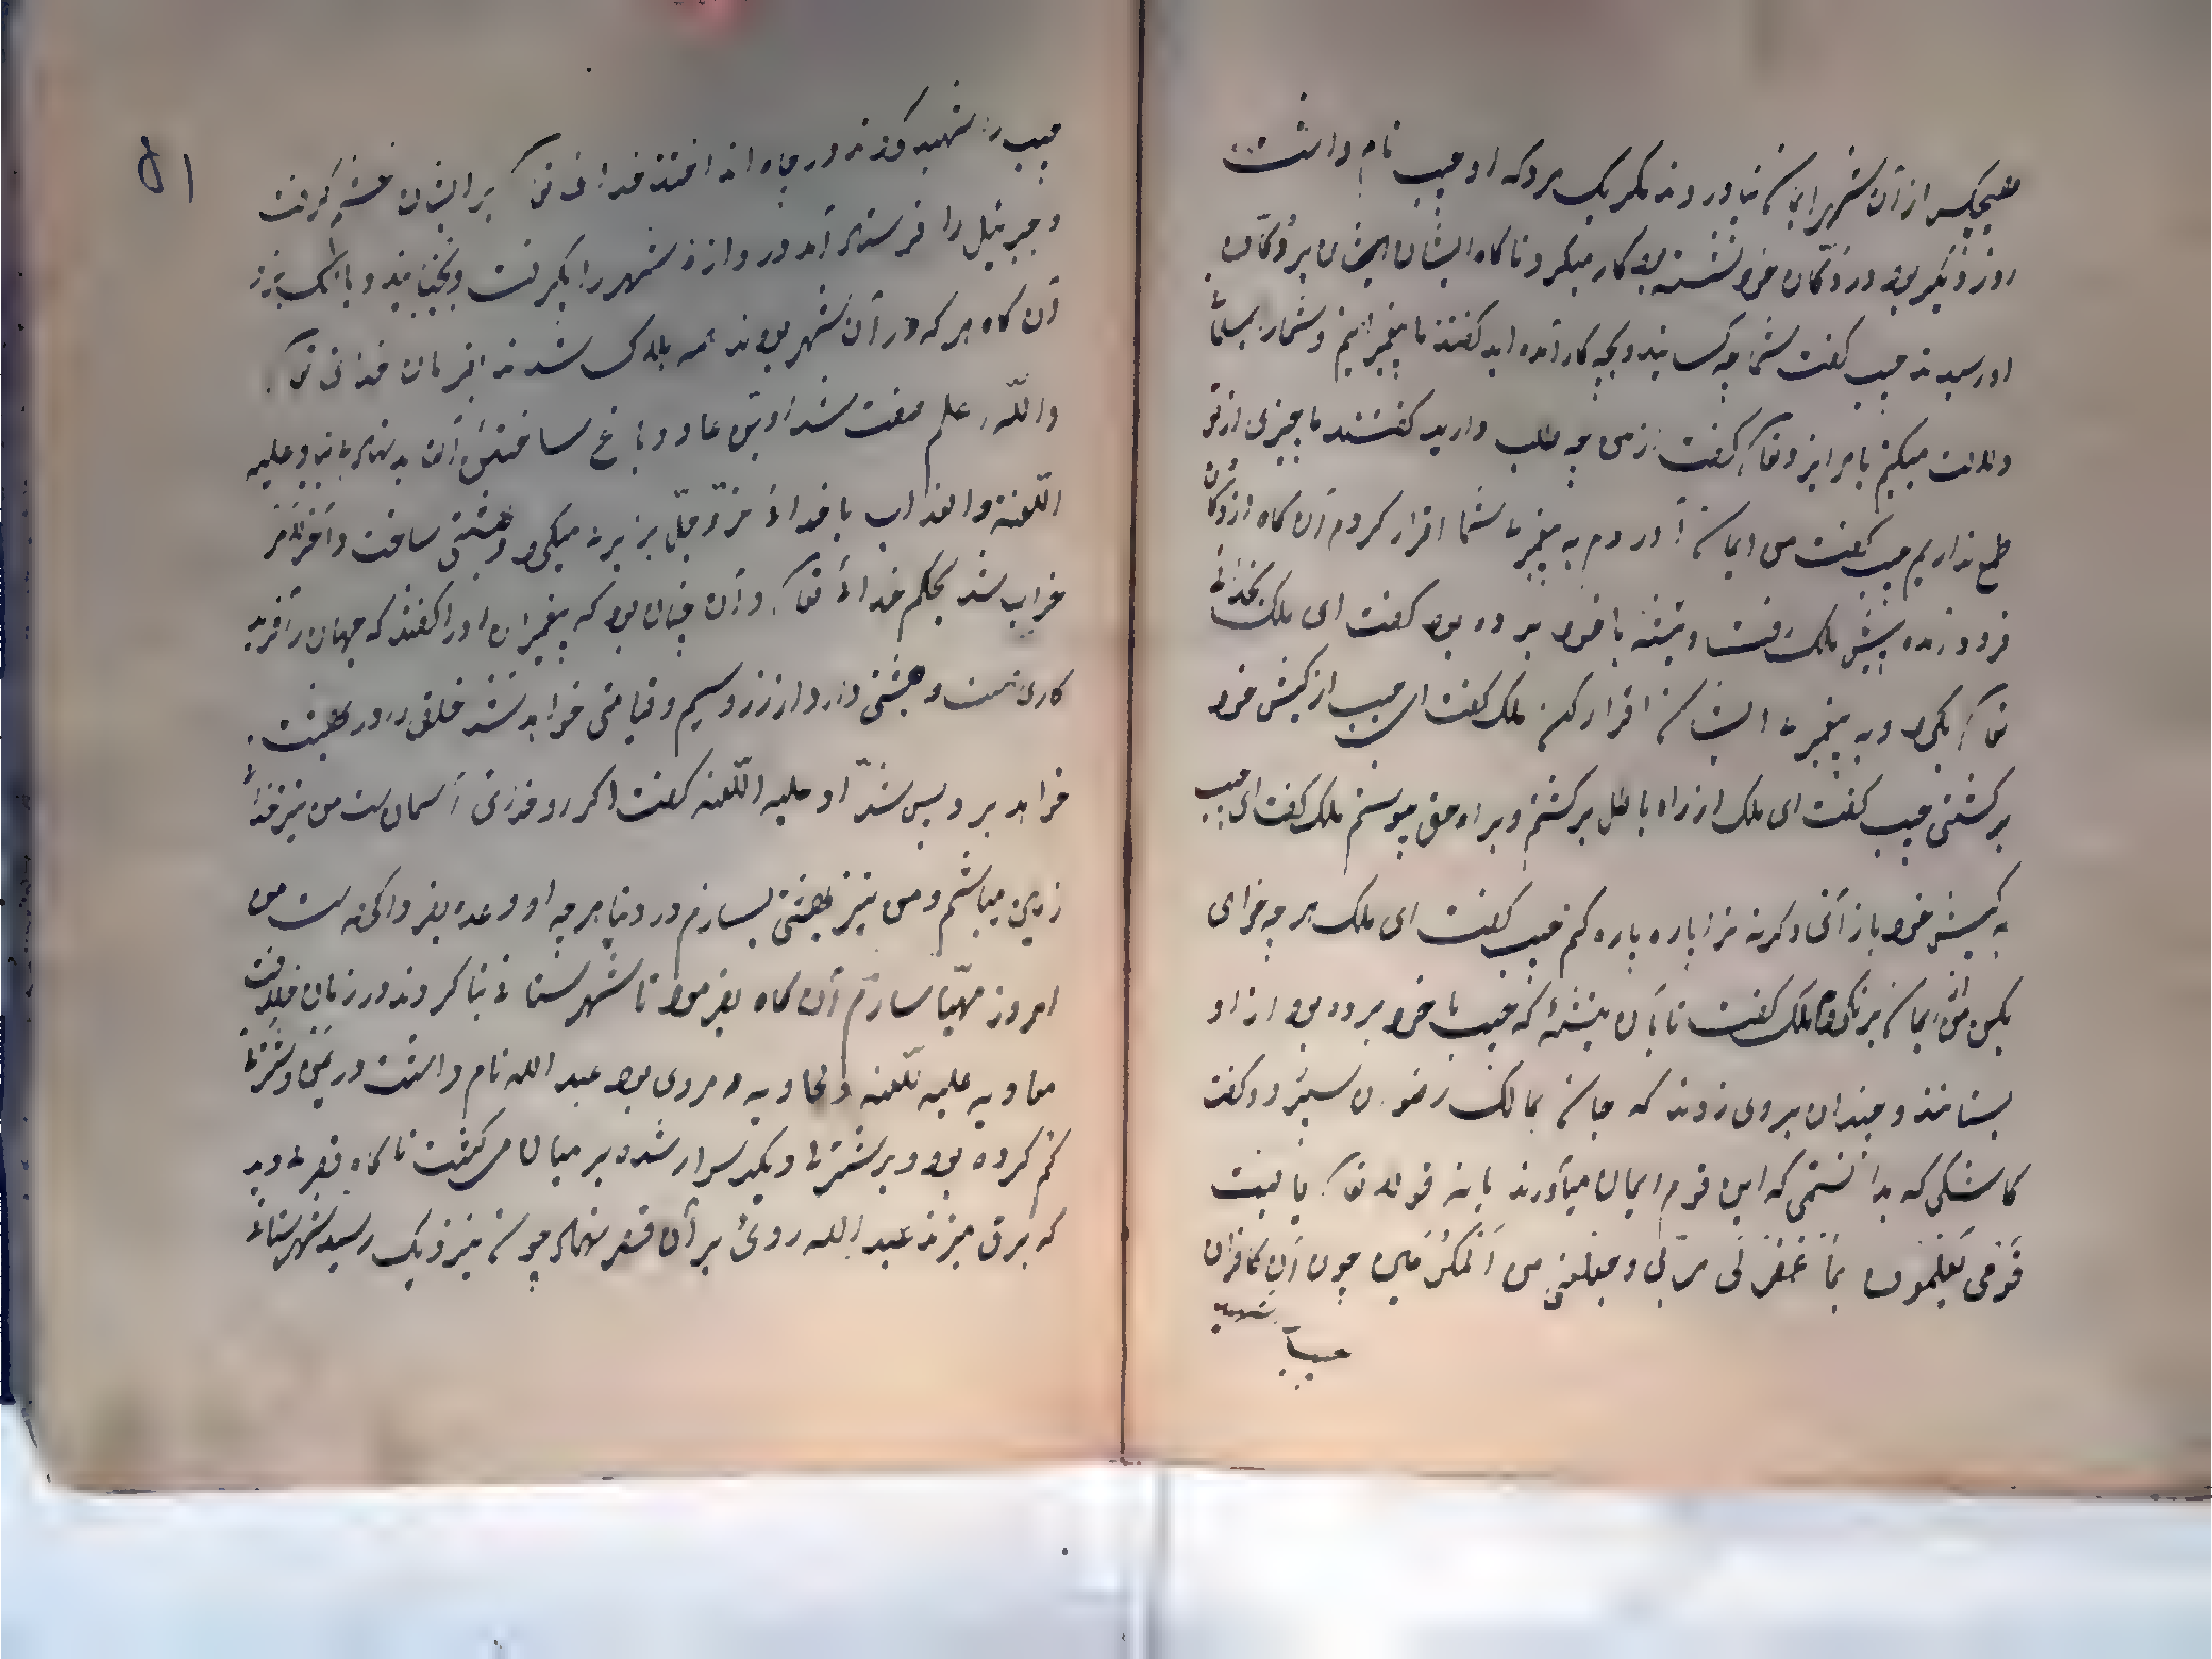 هیچکس از آن شهر ایمان نیاوردند مکر یک مرد که او حبیب نام داشت
روز دیکر بود در دکان خود نشسته بود کار میکرد ناکاه ایشان بر دکان
او رسیدند حبیب کفت شما چه کسانید و بچه کار آمده اید کفتند ما پیغمبرانیم و شما را
دلالت میکنیم کفت از من چه طلب دارید کفتند ما چیزی از تو
طمع نداریم حبیب کفت من ایمان آوردم به پیغمبری شما اقرار کردم آن کاه از دکان
فرود آمده پیش ملک رفت و تیشه با خود برده بود کفت ای ملک بخدای
تعا بکرو و به پیغمبری ایشان اقرار کن ملک کفت ای حبیب از کیش خود
برکشتی حبیب کفت ای ملک از راه باطل برکشتم و براه حق پیوستم ملک کفت ای حبیب
به کیش خود باز آئی وکرنه ترا پاره پاره کنم حبیب کفت ای ملک هر چه خواهی
بکن من از ایمان برنکردم ملک کفت تا بآن تیشهٔ که حبیب با خود برده بود از او
بستانند و چندان بروی زدند که جان بمالک رضوان سپرد و کفت
کاشکی که بدانستمی که این قوم ایمان میآورند یا نه قوله تعا یا لیت
قومی یعلمون بما غفر لی ربی و جعلنی من المکرمین چون آن کافران
حبیب را شهید
حبیب را شهید کردند در چاه انداختند خدای تعا بر ایشان خشم کرفت
و جبرئیل را فرستاد آمد دروازه شهر را بکرفت و بجنبانید و بانک بزد
آن کاه هر که در آن شهر بودند همه هلاک شدند بفرمان خدای تعا
والله اعلم صفت شداد بن عاد و باغ ساختن آن بد بنیاد علیه
اللعنة والعذاب با خدای عز و جل برابری میکرد و بهشتی ساخت و آخر الامر
خراب شد بحکم خدای تعا و آن چنان بود که پیغمبران او را کفتند که جهان را آفرید
کاری است و بهشتی دارد از زر و سیم و قیامتی خواهد شد خلق را در بهشت
خواهد برد پس شداد علیه اللعنه کفت اکر او خدای آسمان است من نیز خدای
زمین میباشم و من نیز بهشتی بسازم در دنیا هر چه او وعده بفردا کرده است من
امروز مهیا سازم آن کاه بفرمود تا شهرستانی بنا کردند در زمان خلافت
معاویه علیه اللعنه و مردی بود عبد الله نام داشت در یمن و شتری
کم کرده بود و بر شتری دیکر سوار شده بر میان می کشت ناکاه قصری دید
که برق میزند عبد الله روی بر آن قصر نهاد چون بنزدیک رسید شهرستانی
۵۱